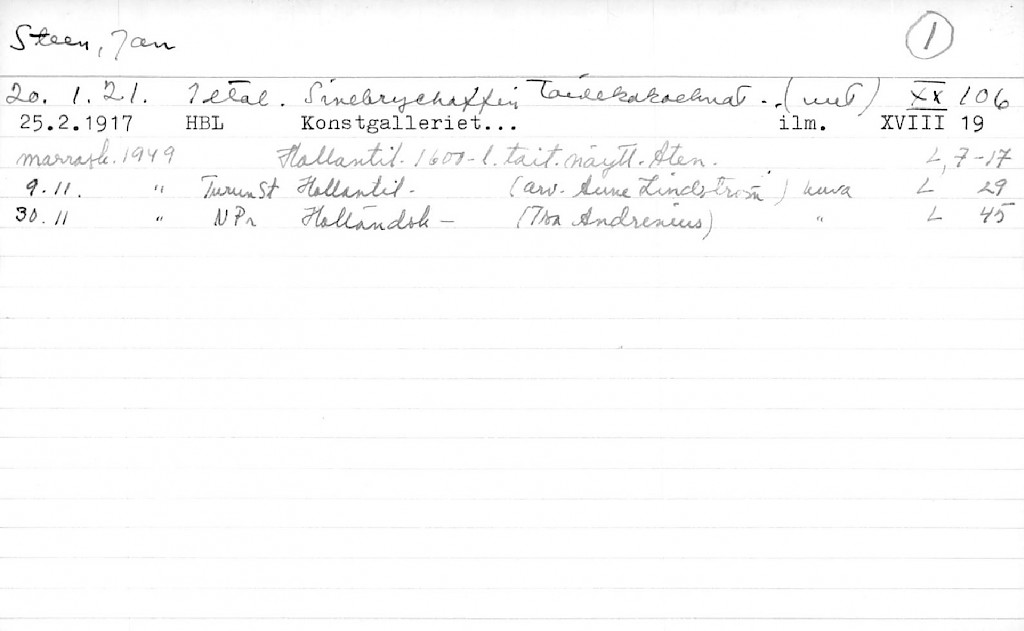 Steen, Jan 1
20. 1. 21. Iltal. Sinebrychoffin Taidekokoelmat .. (uut) XX 106
25.2.1917 HBL Konstgalleriet... ilm. XVIII 19
marrask. 1949 Hollantil. 1600-l. tait. näytt. Aten. L, 7-17
9.11. " TurunSt Hollantil- (arv. Aune Lindström) kuva L 29
30.11 " NPr Holländsk - (Isa Andrenius) " L 45